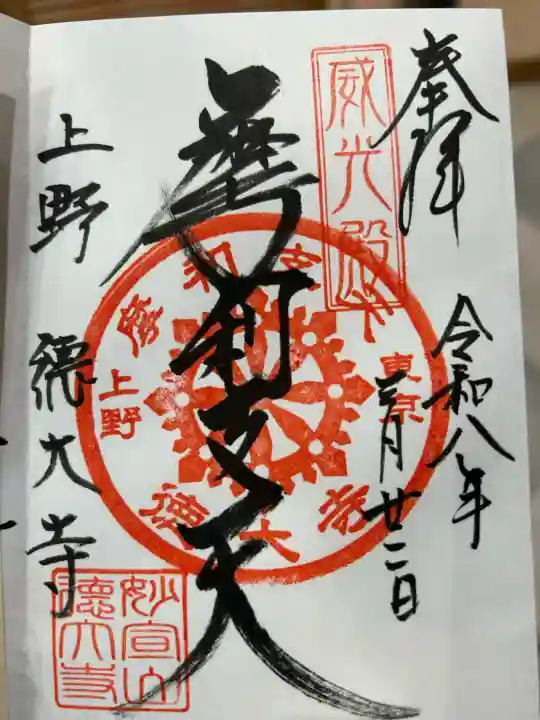 奉拝
令和八年
三月廿二日
威光殿
摩利支天
上野
東京
徳大寺
上野 徳大寺
妙宣山
徳大寺